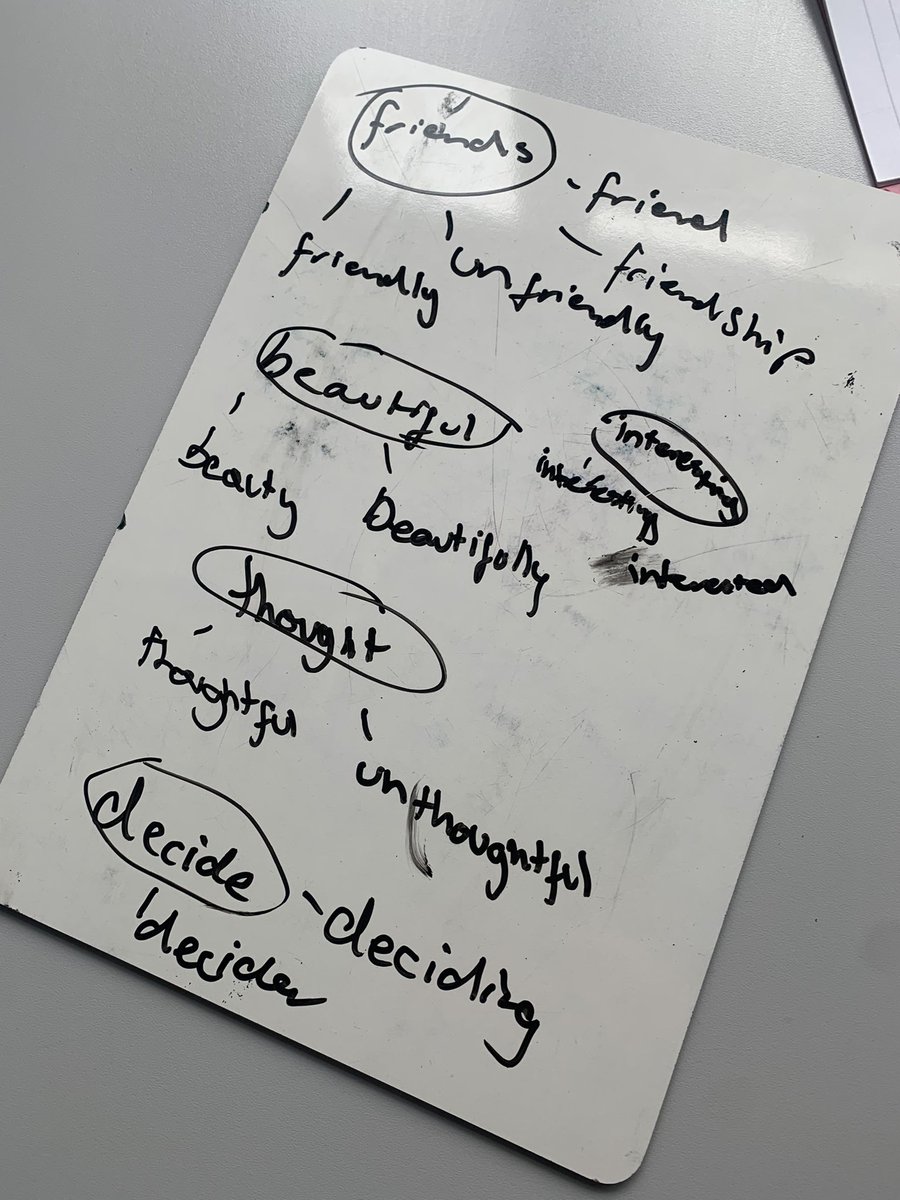 friends
- friend
- friendship
friendly
unfriendly
beautiful
interesting
beauty
interesting
beautifully
interested
thought
thoughtful
unthoughtful
decide
- deciding
decider